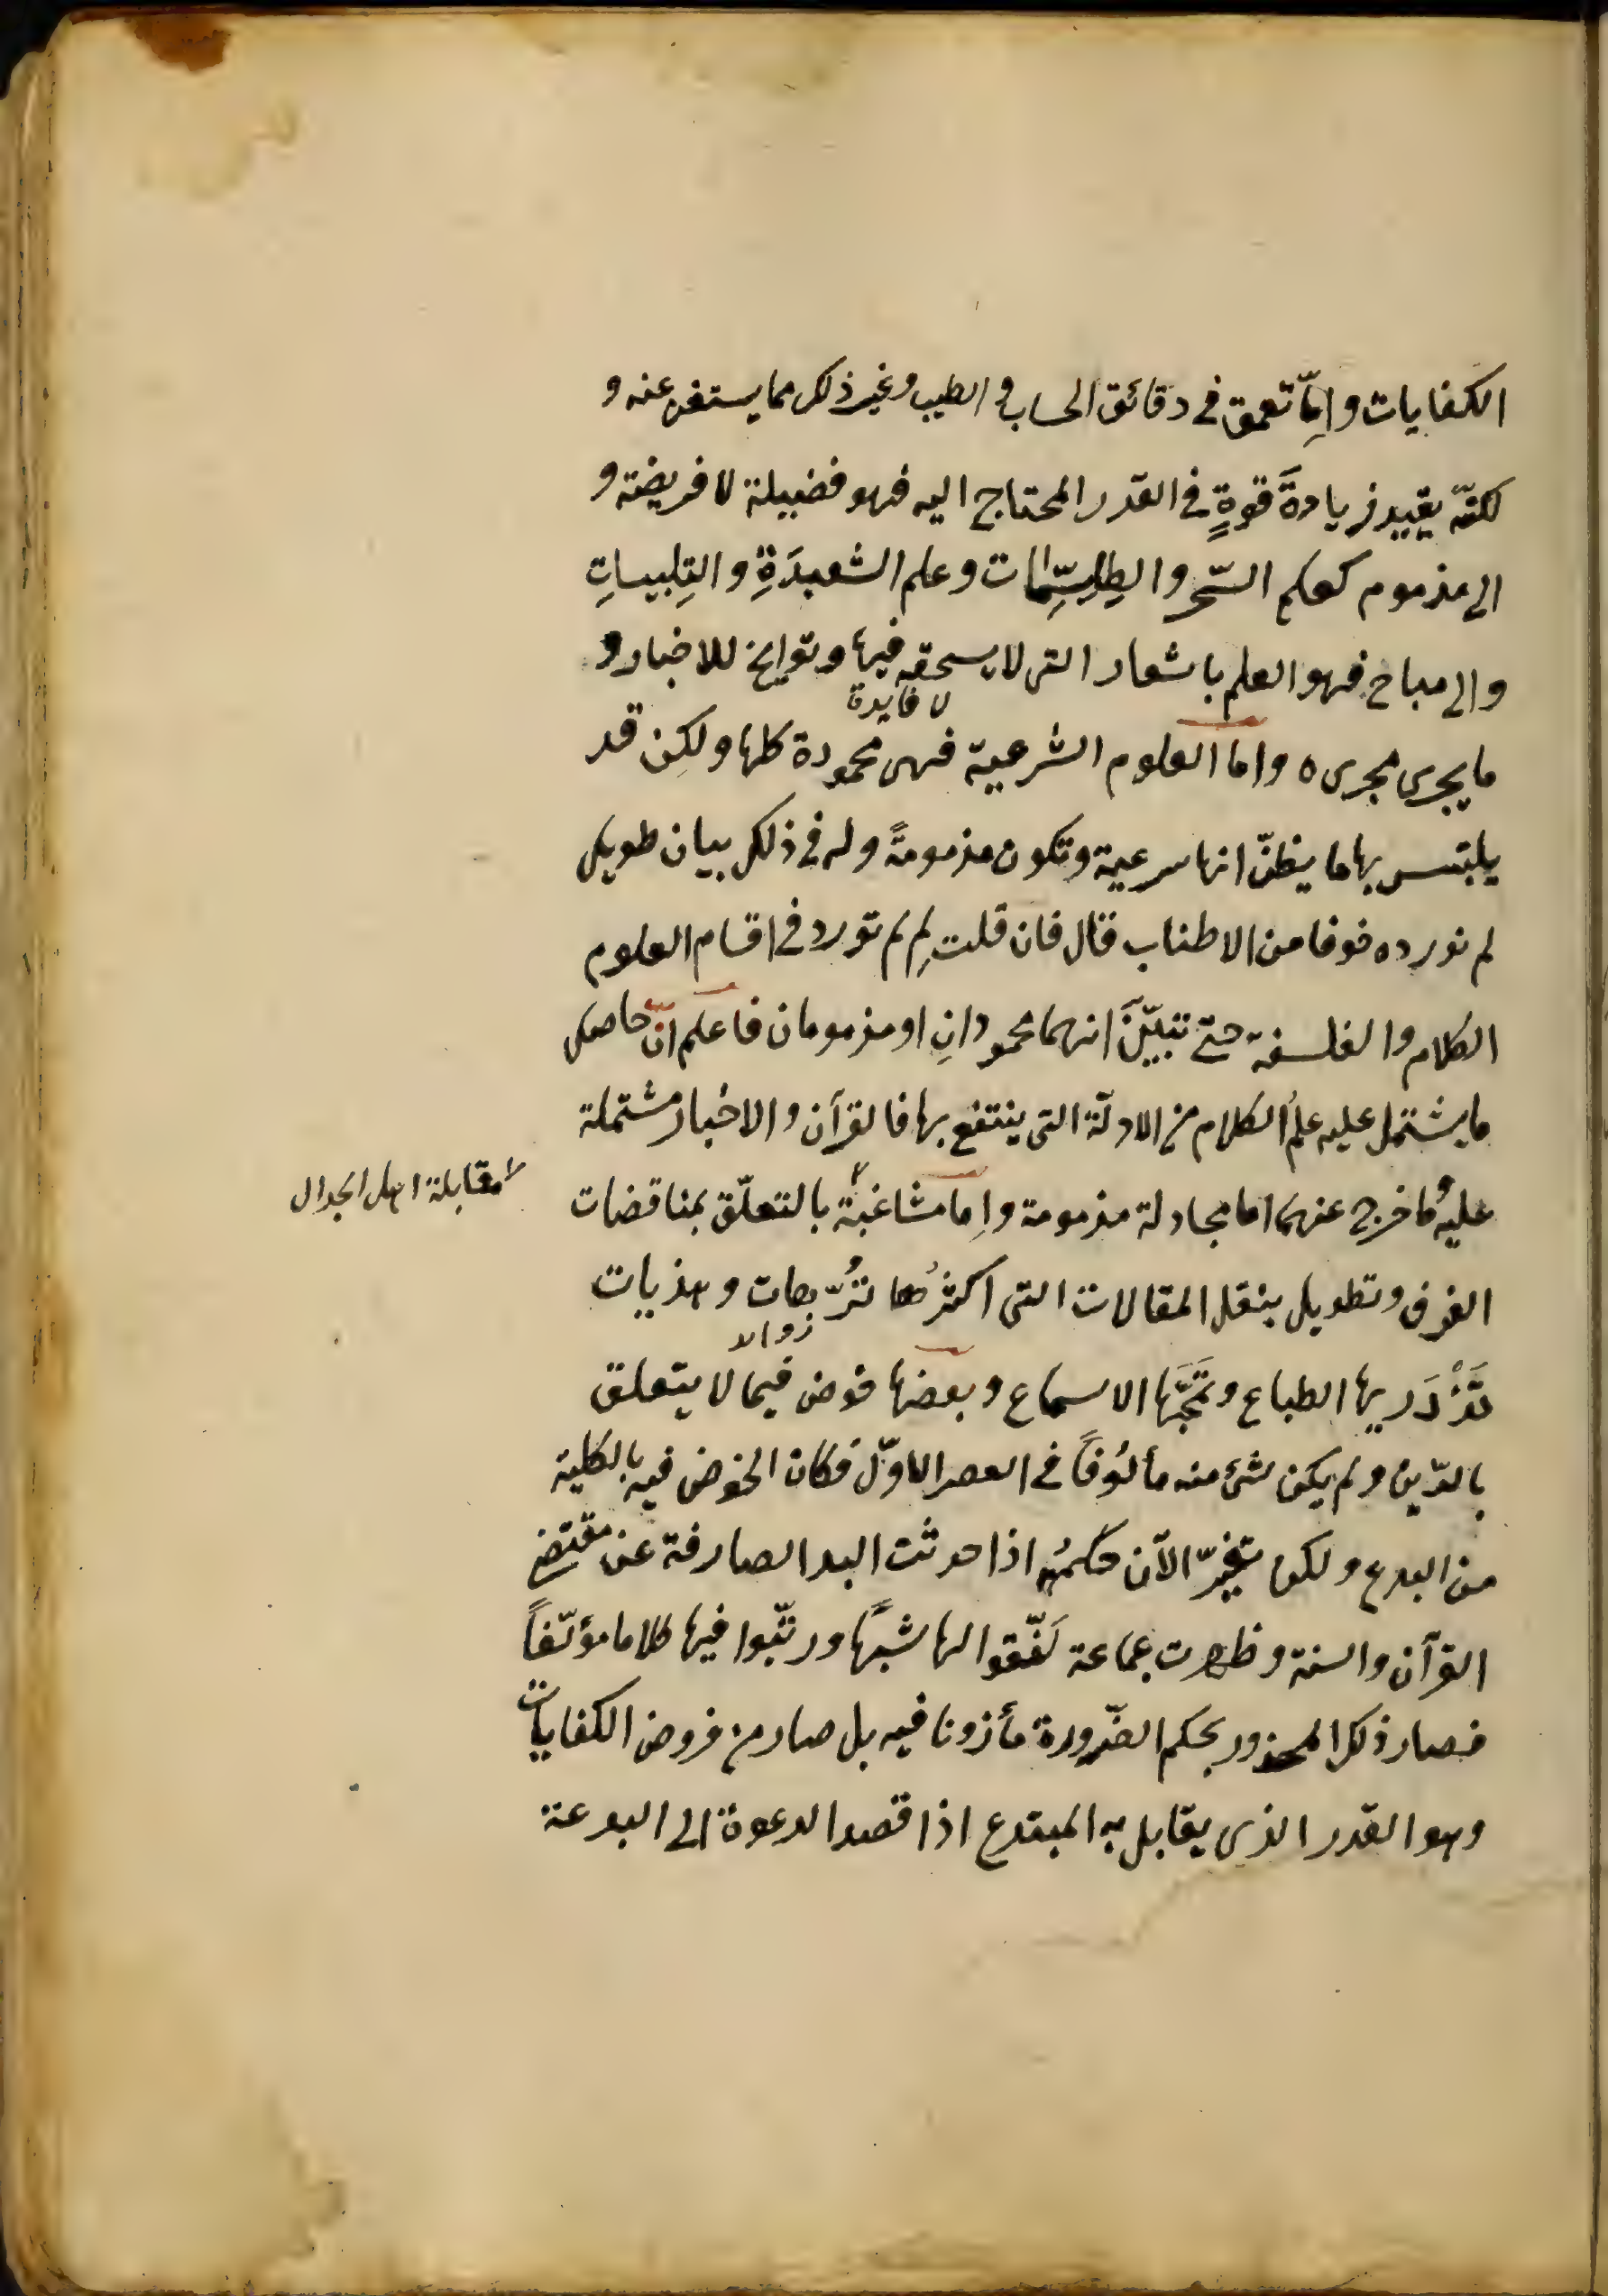 الكفايات وامّا تعمق فى دقائق الحساب و الطب وغير ذلك مما يستغنى عنه و
لكنّه يفيد زيادةَ قوةٍ فى القدر المحتاج اليه فهو فضيلة لا فريضة و
الى مذموم كعلم السّحر والطِلِسّمات وعلم الشعبدَةِ والتِلبيساتِ
والى مباح فهو العلم باشعار التى لا سحقه فيها وتواريخ للاخبار و
لا فايدة
ما يجرى مجرى ه واما العلوم الشرعية فهى محمودة كلها ولكن قد
يلبتس بها ما ينظنّ انها سرعية وتكون مذمومةً وله فى ذلك بيان طويل
لم نورده خوفا من الاطناب قال فان قلت لِم لم تورد فى اقسام العلوم
الكلام والفلسفة حتى تتبيّنَ انهما محمودانِ او مذمومان فاعلم انّ حاصل
ما يشتمل عليه علمُ الكلام من الادلّة التى ينتفع بها فالقرآن والاخبار مشتملة
عليه وما خرج عنهما اما مجادلة مذمومة واِما مشاغبة بالتعلّق بمناقضات
لمقابلة اهل الجدال
الفرق وتطويل بنقل المقالات التى اكثرُها تُرّهات وهذيات
زوائد
تَزْدَريها الطباع وتَمَجُّها الاسماع وبعضها خوض فيما لا يتعلق
بالدّين ولم يكن شئ منه مألوُفاً فى العصر الاوّل فكان الخوض فيه بالكلية
من البدع ولكن تغيّر الآن حكمُه اذا حدثت البدا الصارفة عن مقتضى
القرآن والسنة وظهرت جماعة لَفّقوا لها شبهًا ورتّبوا فيها كلاما مؤلّفاً
فصار ذلك المحذور بحكم الضّرورة مأذونا فيه بل صار من فروض الكفايات
وهو القدر الذى يقابل به المبتدع اذا قصد الدعوة الى البدعة